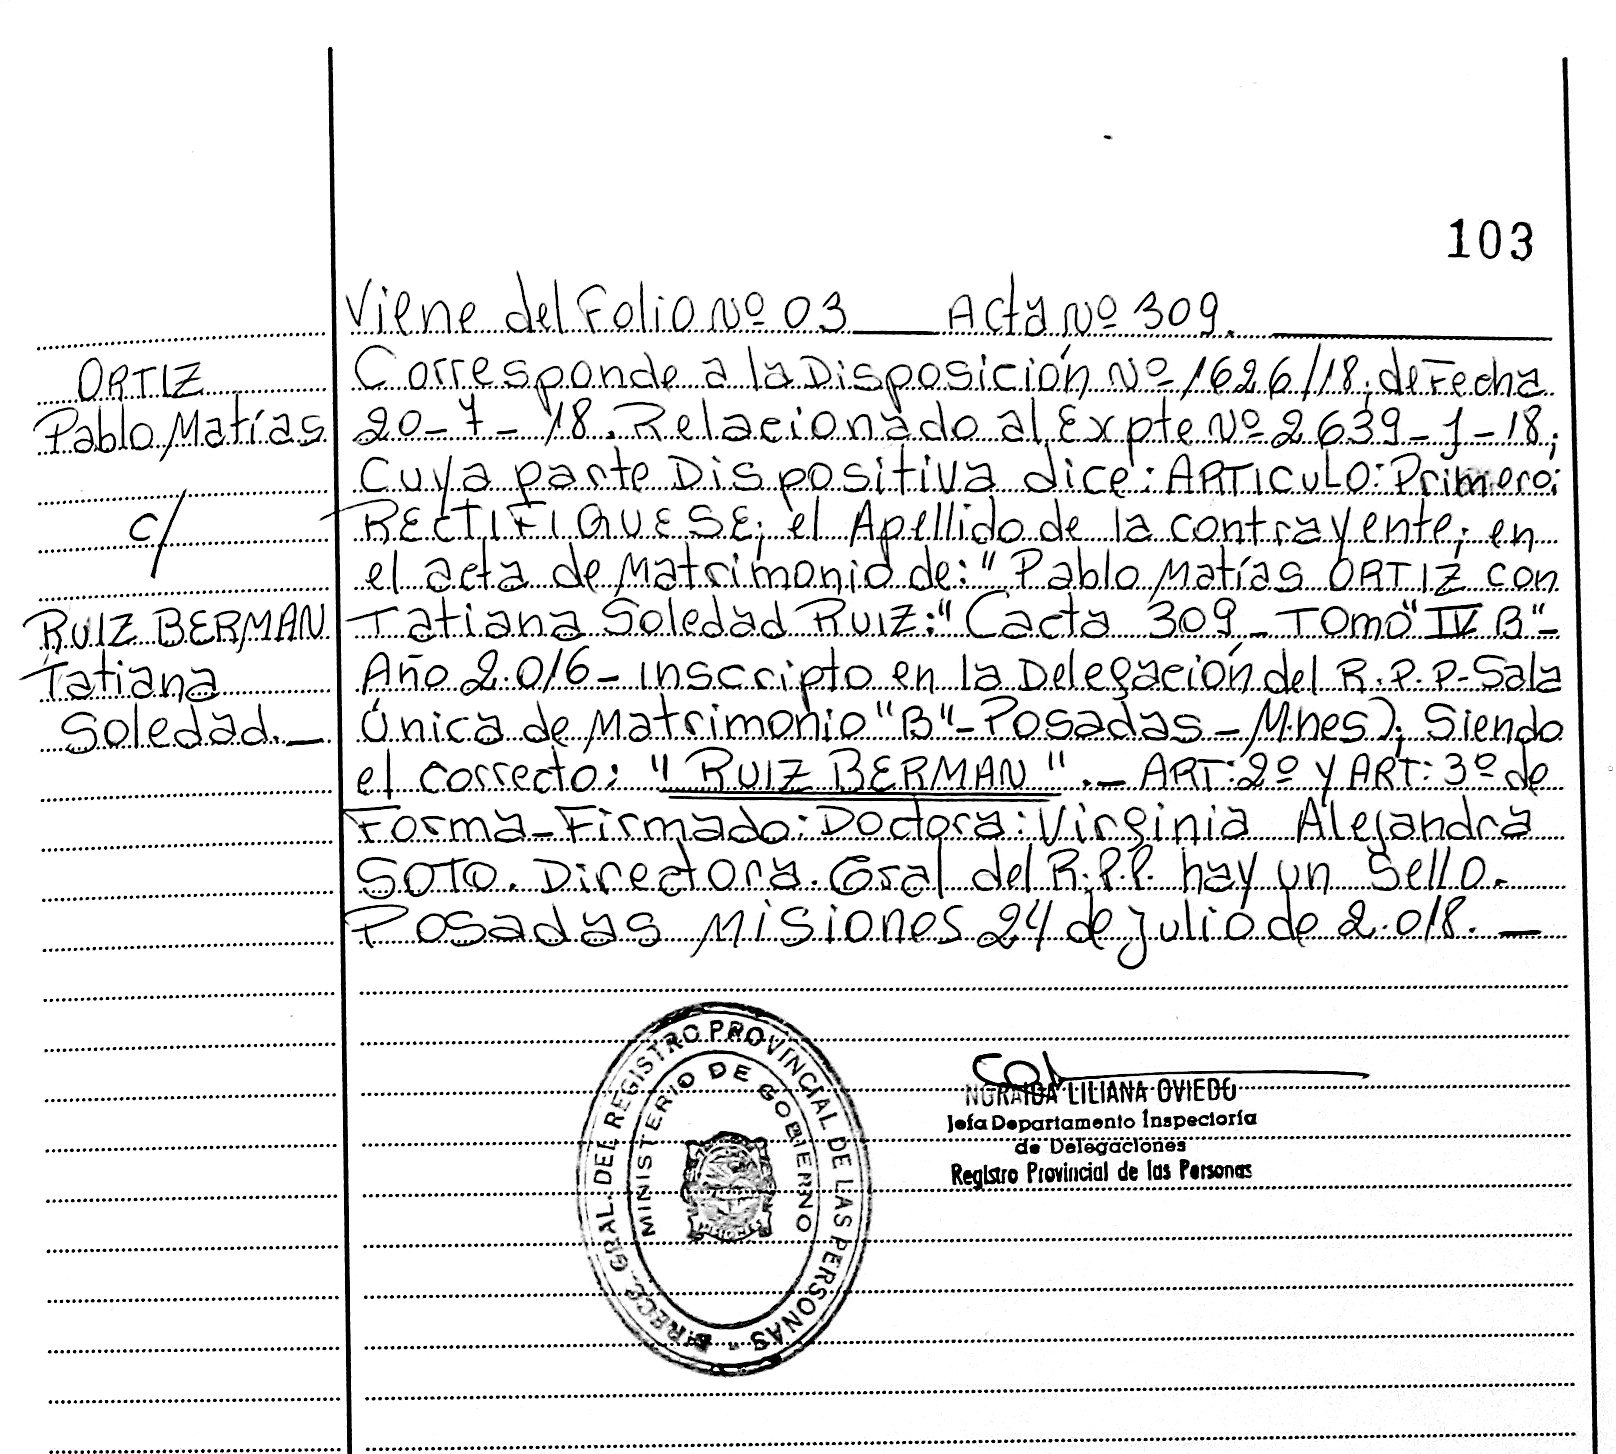 103
Viene del Folio Nº 03 ___ Acta Nº 309.
ORTIZ
Pablo Matías
c/
RUIZ BERMAN
Tatiana
Soledad._
Corresponde a la Disposición Nº 1626/18; de Fecha
20-7-18. Relacionado al Expte Nº 2639-J-18;
Cuya parte Dispositiva dice: ARTICULO: Primero:
RECTIFIQUESE; el Apellido de la contrayente; en
el acta de Matrimonio de: "Pablo Matías ORTIZ con
Tatiana Soledad RUIZ:" (acta 309 - Tomo "IV B" -
Año 2.016 - Inscripto en la Delegación del R.P.P - Sala
Única de Matrimonio "B" - Posadas - Mnes); Siendo
el correcto: "RUIZ BERMAN". - ART: 2º y ART: 3º de
Forma - Firmado: Doctora: Virginia Alejandra
SOTO. Directora. Gral del R.P.P. hay un Sello.
Posadas Misiones 24 de Julio de 2.018. _
GRAL. DEL REGISTRO PROVINCIAL DE LAS PERSONAS
MINISTERIO DE GOBIERNO
MISIONES
LILIANA OVIEDO
Jefa Departamento Inspectoría
de Delegaciones
Registro Provincial de las Personas